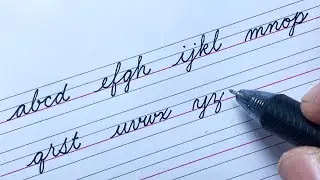 abcd efgh ijkl mnop
qrst uvwx yz